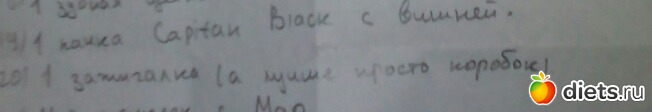 1 
19) 1 пачка Capitan Black с вишней.
20) 1 зажигалка (а лучше просто коробок)
diets.ru